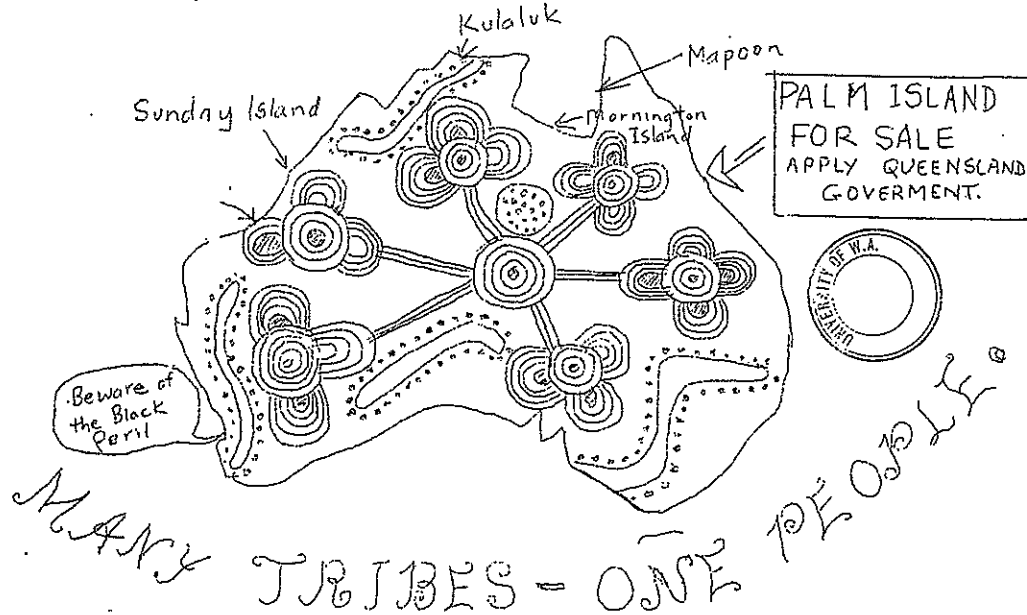 Kulaluk
Mapoon
Sunday Island
Mornington
Island
PALM ISLAND
FOR SALE
APPLY QUEENSLAND
GOVERMENT.
UNIVERSITY OF W.A.
Beware of
the Black
Peril
MANY TRIBES - ONE PEOPLE.